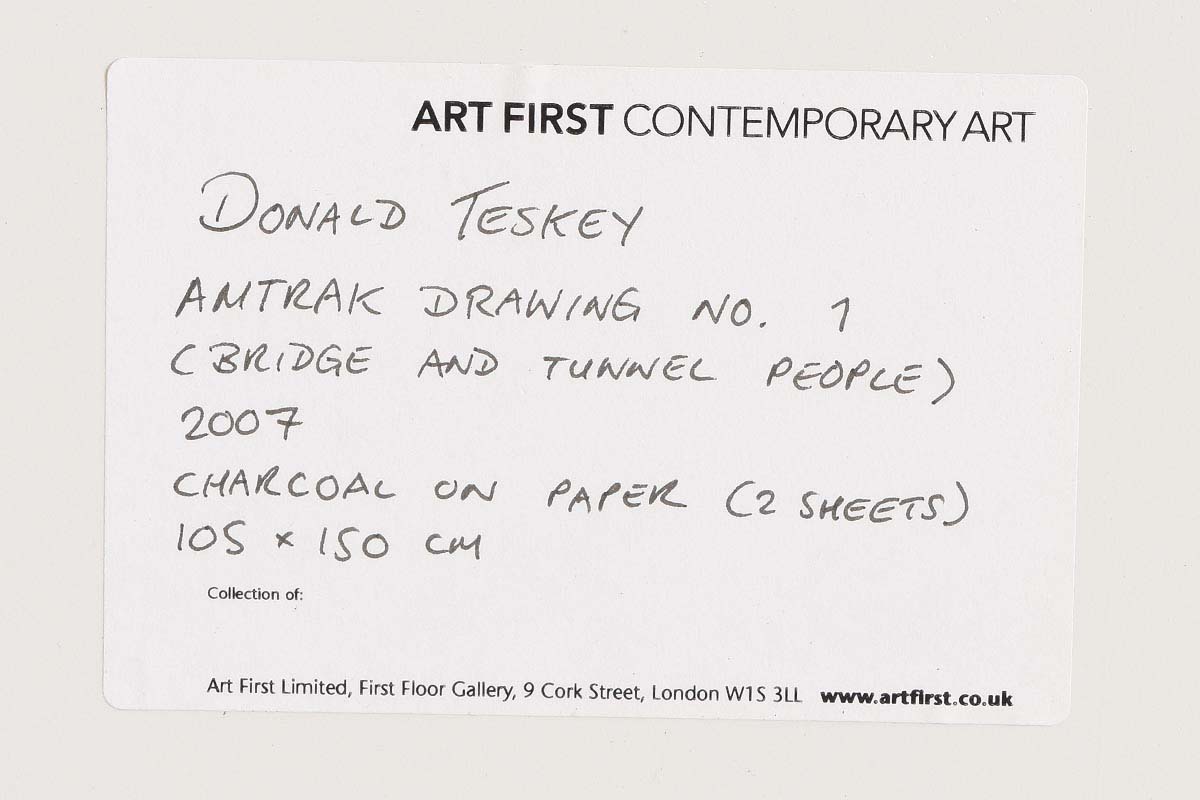 ART FIRST CONTEMPORARY ART
DONALD TESKEY
AMTRAK DRAWING NO. 1
(BRIDGE AND TUNNEL PEOPLE)
2007
CHARCOAL ON PAPER (2 SHEETS)
105 x 150 CM
Collection of:
Art First Limited, First Floor Gallery, 9 Cork Street, London W1S 3LL www.artfirst.co.uk